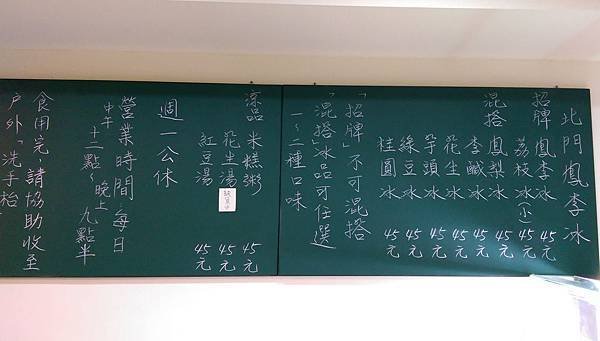 北門鳳李冰
招牌 鳳李冰 45元
荔枝冰(小) 45元
混搭 鳳梨冰 45元
李鹹冰 45元
花生冰 45元
芋頭冰 45元
綠豆冰 45元
桂圓冰 45元
「招牌」不可混搭
「混搭」冰品可任選
一~二種口味
涼品 米糕粥 45元
花生湯 45元
紅豆湯 45元
週一公休
營業時間:每日
中午十二點~晚上九點半
食用完,請協助收至
戶外「洗手枱